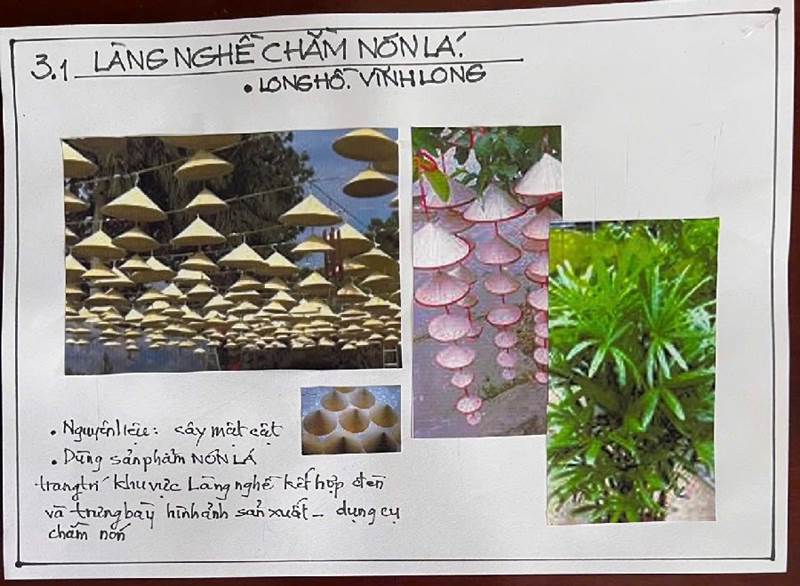 3.1 LÀNG NGHỀ CHẰM NÓN LÁ.
• LONG HỒ. VĨNH LONG
• Nguyên liệu: cây mật cật
• Dùng sản phẩm NÓN LÁ
trang trí khu vực Làng nghề kết hợp đèn
và trưng bày hình ảnh sản xuất - dụng cụ
chằm nón